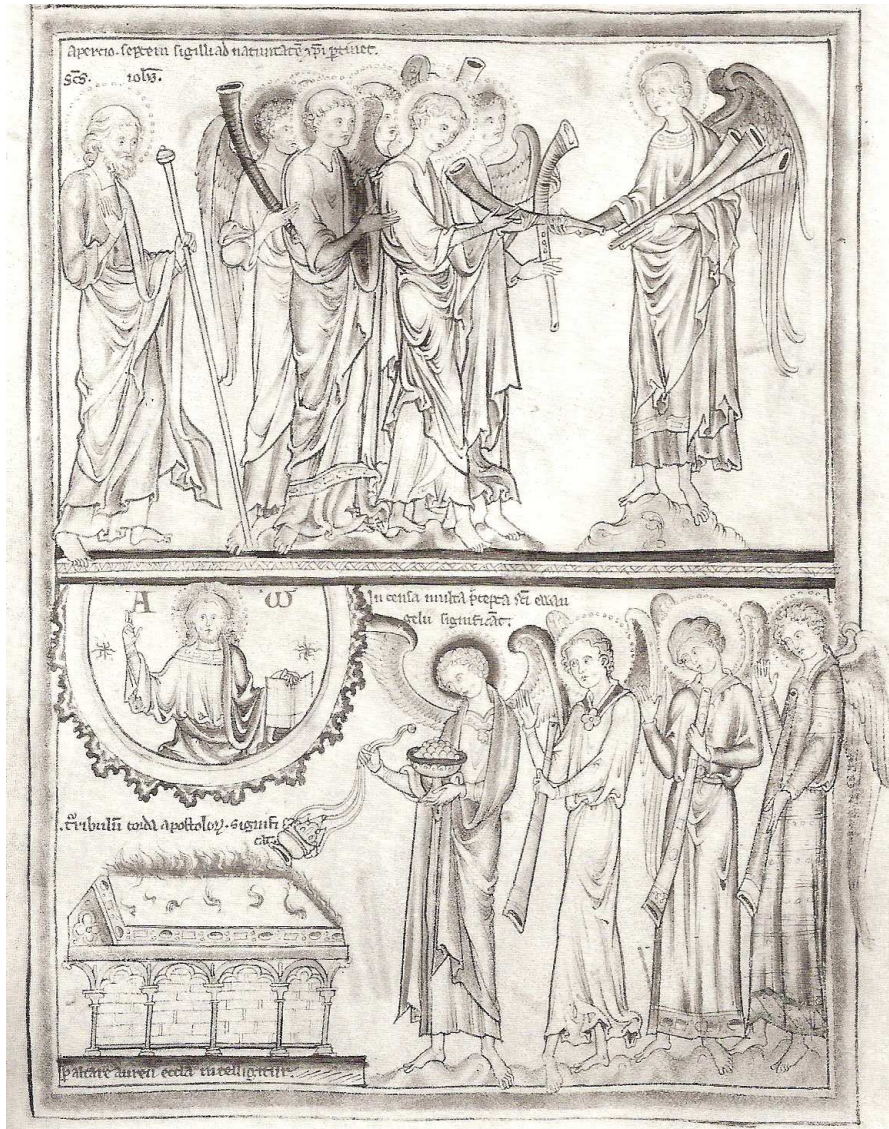 Apercio. septem sigilli ad natiuitatē xp̄i ꝑtinet.
Sc̄s. ioh̄s.
A ω
Incensa multa p̄cepta sc̄i euan
gelii significāt.
t̾ribulū corda apostoloꝝ. signifi
cāt.
ꝑ altare aureū eccl̄a intelligitur.